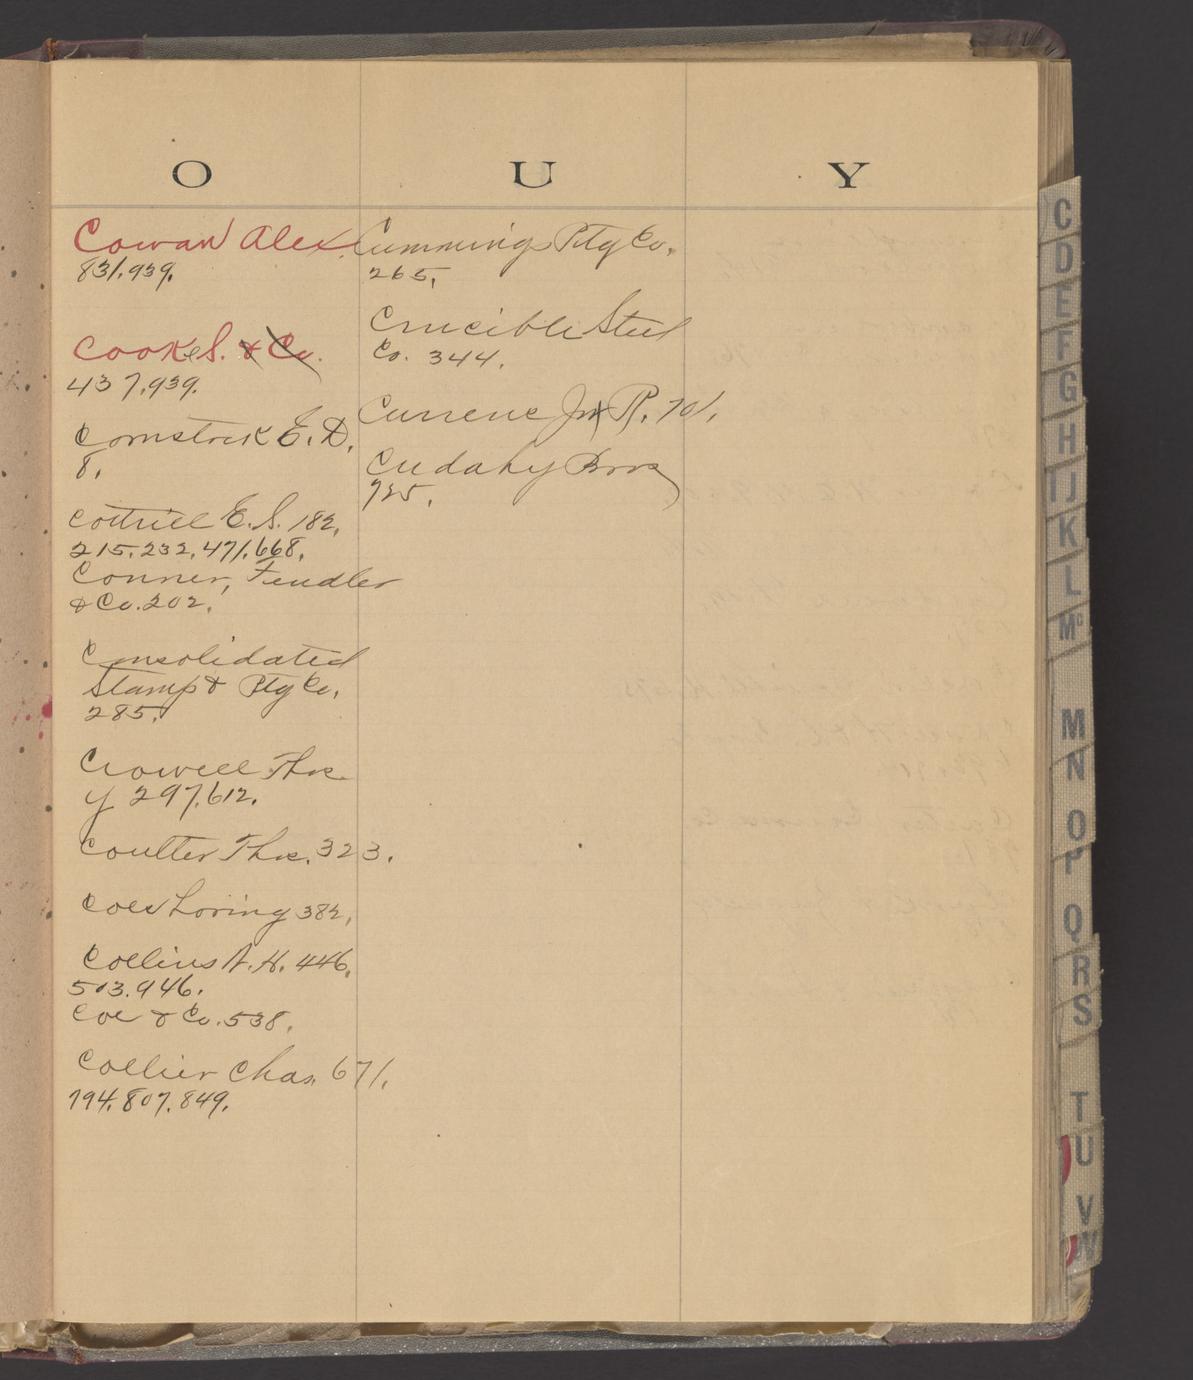 O
Cowan Alex.
831.939.
Cooke S. & Co.
437.939.
Comstock E. D.
8.
Cottrill E. S. 182,
215.232.471.668.
Conner, Fendler
& Co. 202.
Consolidated
Stamp & Ptg Co.
285.
Crowell Thos.
Y 297.612.
Coulter Thos. 323.
Coes Loring 382,
Collins A. H. 446.
503.946.
Coe & Co. 538.
Collier Chas. 671.
794.807.849.
U
Cummings Ptg Co.
265.
Crucible Steel
Co. 344.
Currene R. 701.
Cudahy Bros
725.
Y
C
D
E
F
G
H
I J
K
L
Mc
M
N
O
P
Q
R
S
T
U
V
W